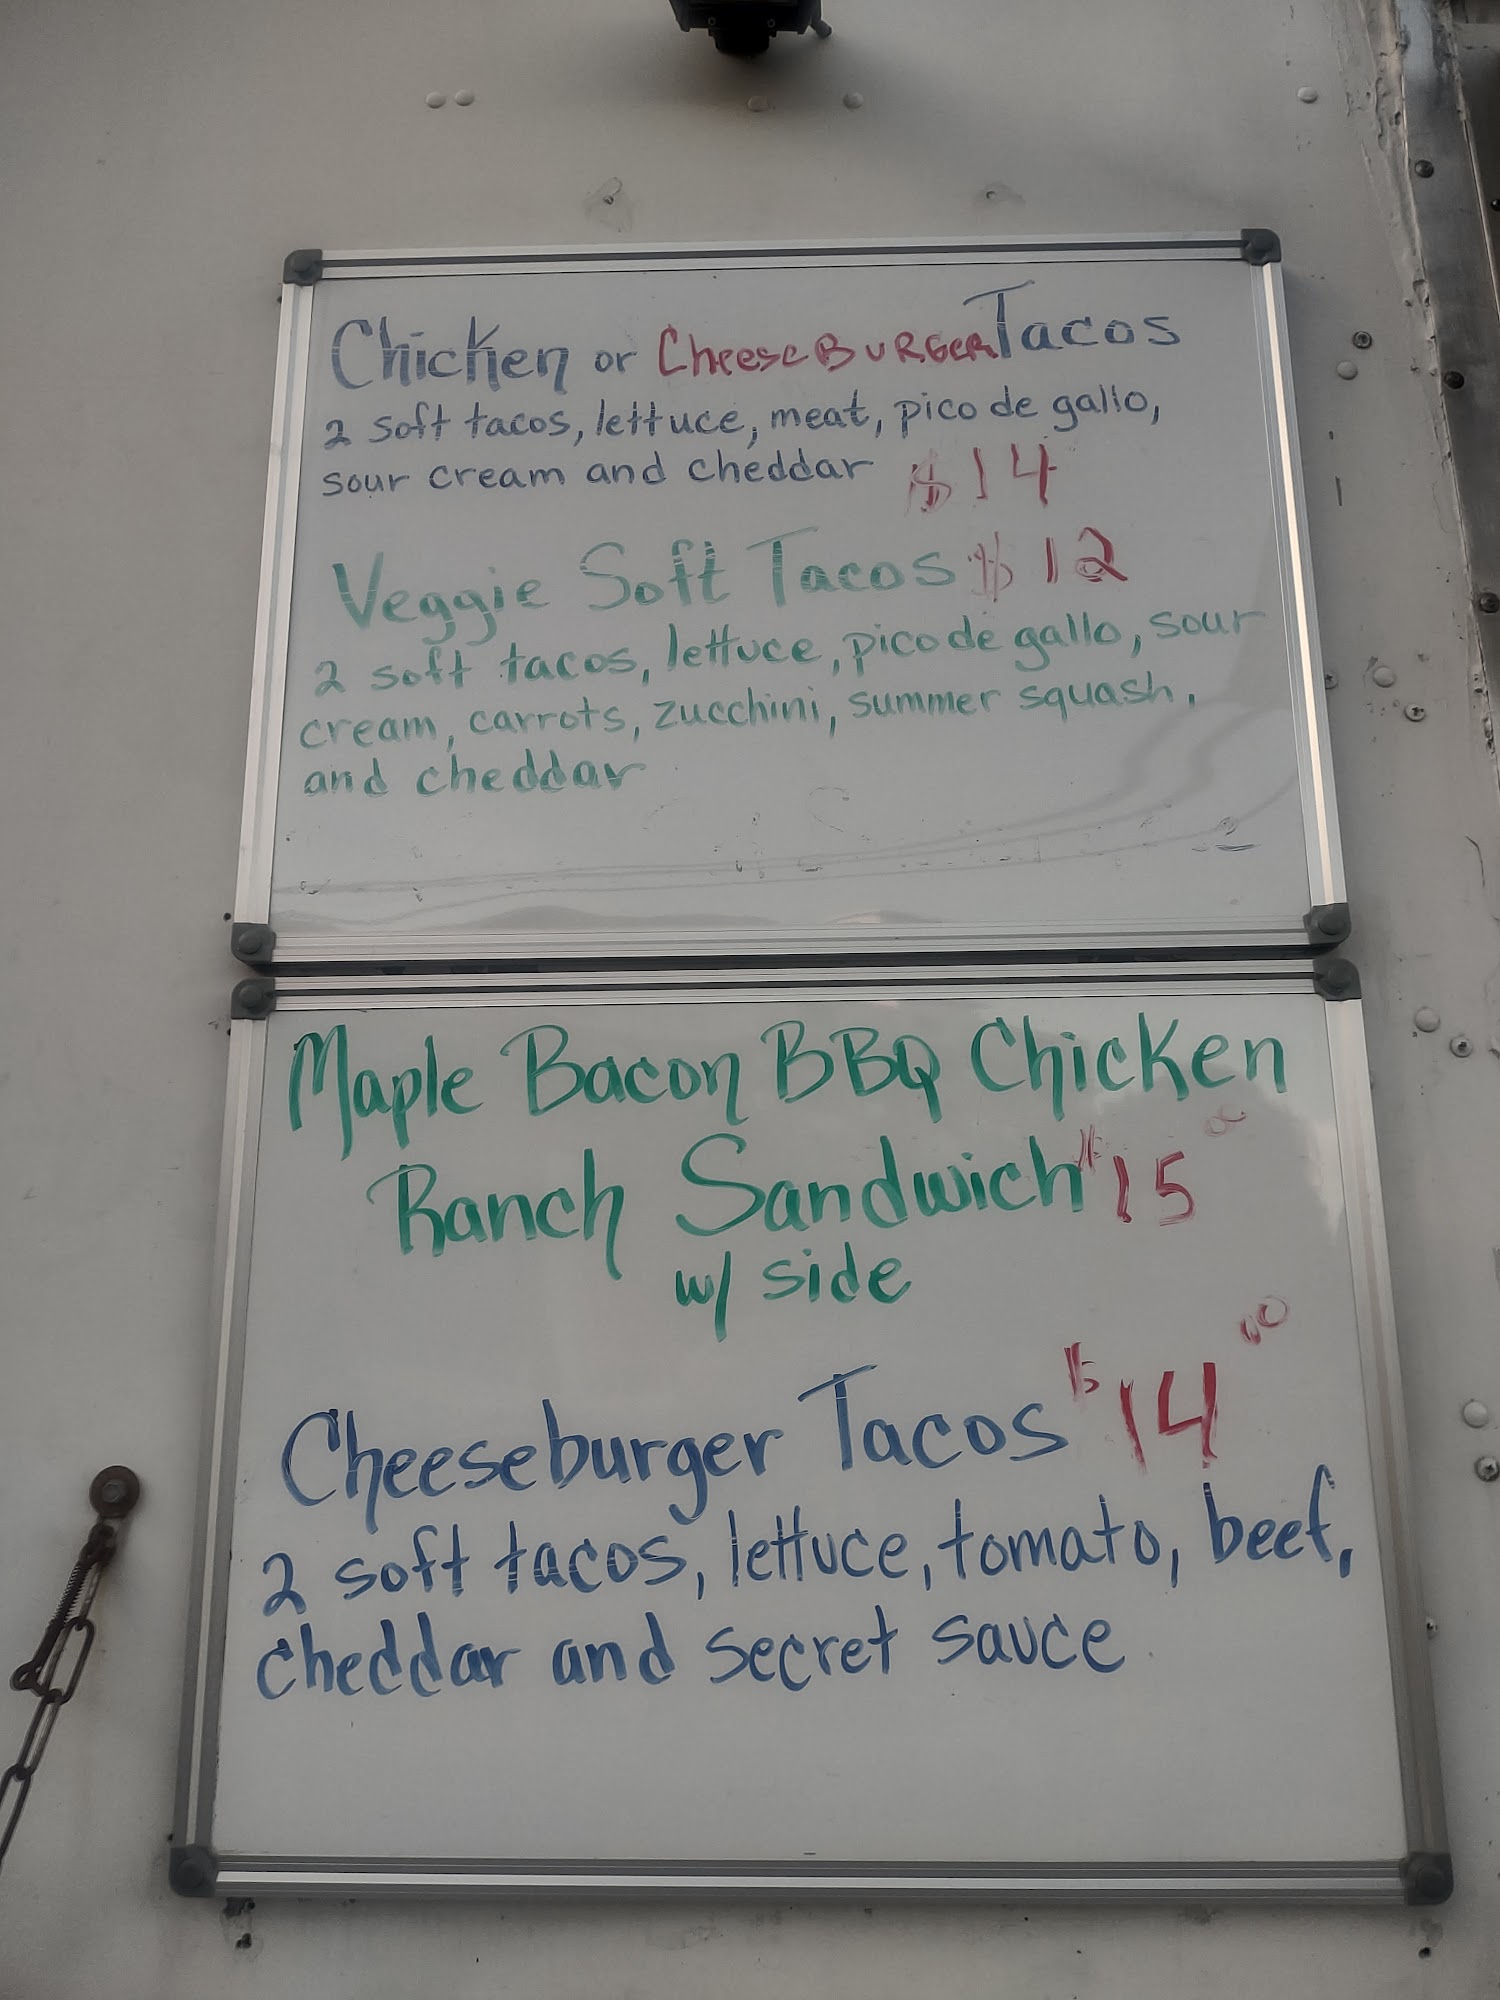 Chicken or CheeseBURGER Tacos
2 soft tacos, lettuce, meat, pico de gallo,
sour cream and cheddar $14
Veggie Soft Tacos $12
2 soft tacos, lettuce, pico de gallo, sour
cream, carrots, zucchini, summer squash,
and cheddar
Maple Bacon BBQ Chicken
Ranch Sandwich $15 00
w/ side
Cheeseburger Tacos $14 00
2 soft tacos, lettuce, tomato, beef,
cheddar and secret sauce